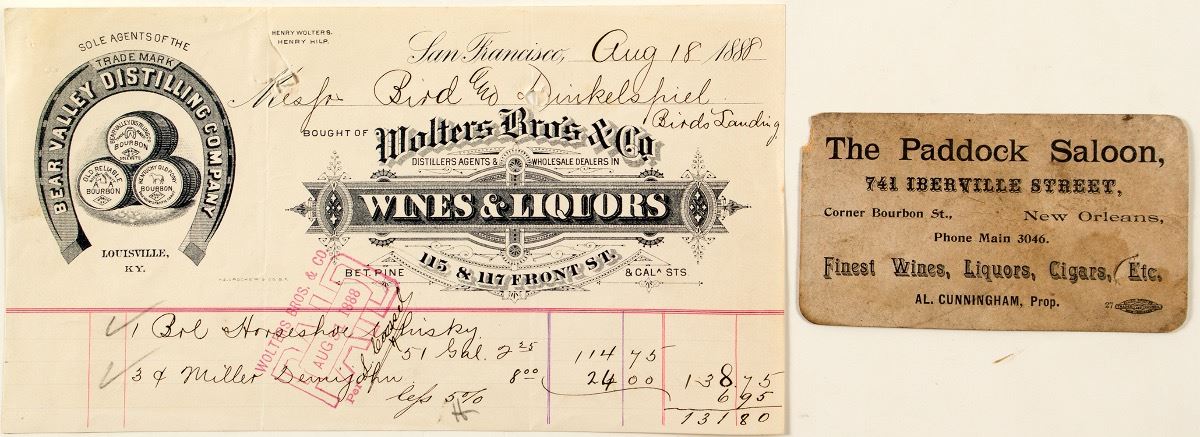 HENRY WOLTERS.
HENRY HILP.
San Francisco, Aug 18 1888
Messrs Bird and Dinkelspiel
Birds Landing
BOUGHT OF Wolters Bro's & Co
DISTILLERS AGENTS & WHOLESALE DEALERS IN
WINES & LIQUORS
115 & 117 FRONT ST.
BET. PINE & CALA STS.
SOLE AGENTS OF THE
TRADE MARK
BEAR VALLEY DISTILLING COMPANY
BEAR VALLEY DISTILLING
BOURBON
OLD RELIABLE
A A
BOURBON
KENTUCKY OLD PIONEER
BOURBON
LOUISVILLE,
KY.
WOLTERS BROS. & CO.
PAID
AUG 1888
Per
1 Brl Horseshoe Whisky
51 Gal. 2 25 114 75
3 Miller Demijohn 8 00 24 00 138 75
less 5% 6 95
131 80
The Paddock Saloon,
741 IBERVILLE STREET,
Corner Bourbon St., New Orleans,
Phone Main 3046.
Finest Wines, Liquors, Cigars, Etc.
AL. CUNNINGHAM, Prop.
27